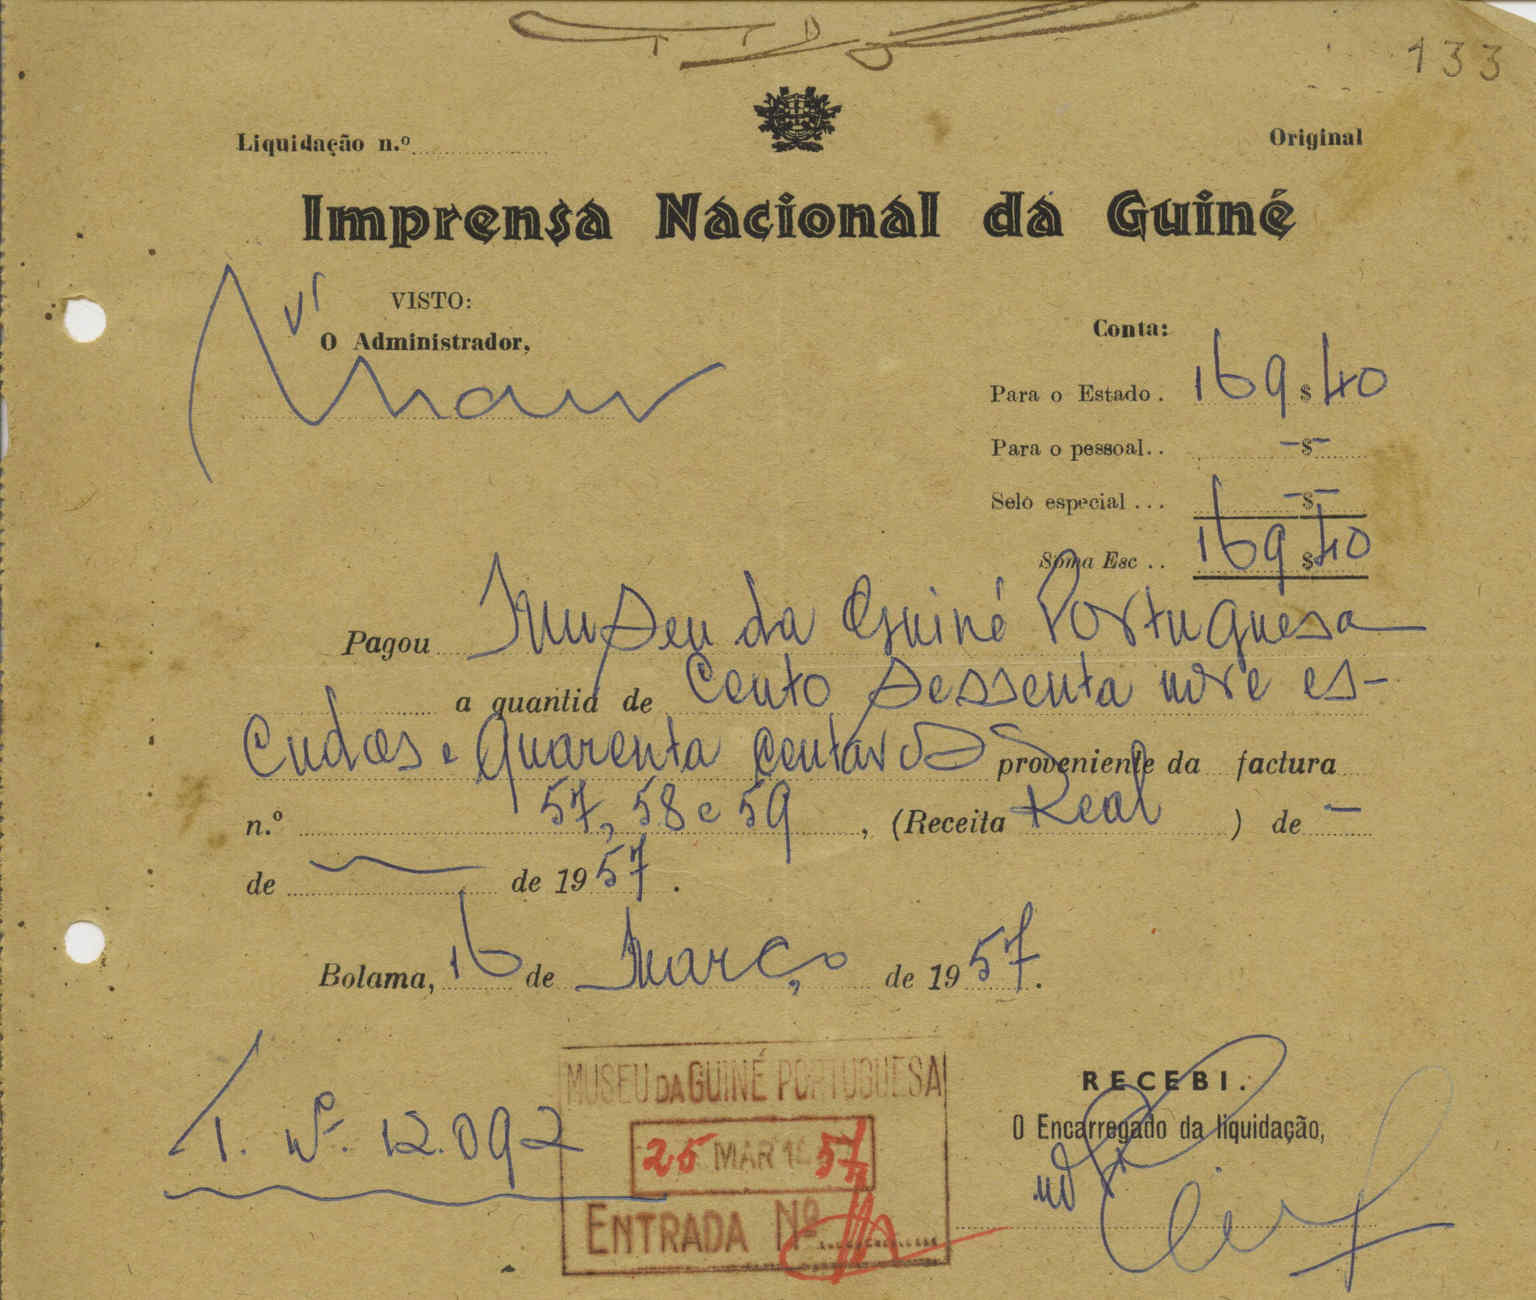 133
Liquidação n.º
Original
Imprensa Nacional da Guiné
VISTO:
O Administrador,
Conta:
Para o Estado . 169$40
Para o pessoal. . -$-
Selo especial . . . -$-
Soma Esc . . 169$40
Pagou Museu da Guiné Portuguesa
a quantia de Cento sessenta nove es-
cudos e quarenta centavos proveniente da factura
n.º 57, 58 e 59, (Receita Real ) de -
de — de 1957.
Bolama, 16 de Março de 1957.
T. Nº. 12.092
MUSEU DA GUINÉ PORTUGUESA
25 MAR 1957
ENTRADA Nº
RECEBI.
O Encarregado da liquidação,